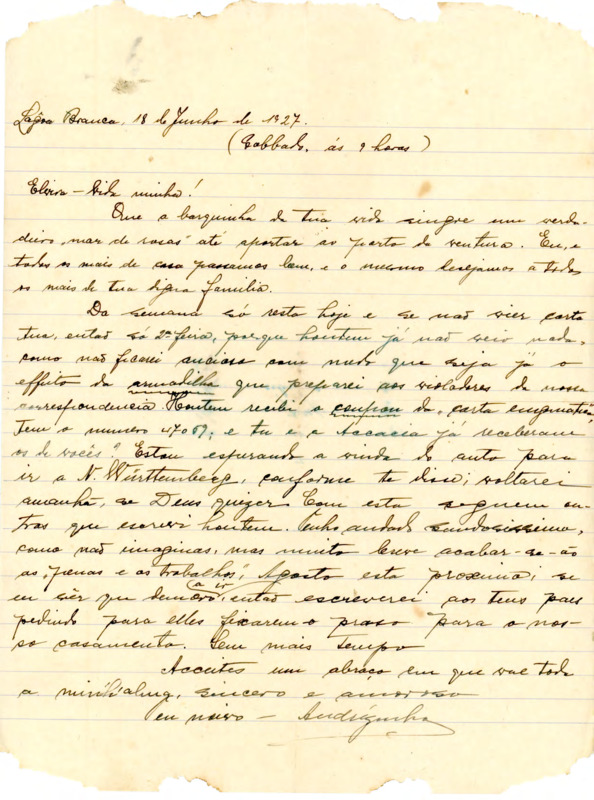 Lagoa Branca, 18 de Junho de 1927.
(Sabbado, ás 9 horas)
Elvira – Vida minha!
Que a barquinha da tua vida singre num verda-
deiro "mar de rosas" até aportar ao porto da ventura. Eu, e
todos os mais de casa passamos bem, e o mesmo desejamos a todos
os mais de tua digna familia.
Da semana só resta hoje e se não vier carta
tua, então só 2ª feira, porque hontem já não veio nada,
como não ficarei ancioso com medo que seja já o
effeito da armadilha que preparei aos violadores da nossa
correspondencia. Hontem recebi o coupon da carta enigmatica,
tem o numero e tu e a Accacia já receberam
os de vocês? Estou esperando a vinda do auto para
ir a N. Württemberg, conforme te disse; voltarei
amanhã, se Deus quizer. Com esta seguem ou-
tras que escrevi hontem. Tenho andado
como não imaginas, mas muito breve acabar-se-ão
as "penas e os trabalhos", Agosto esta proximo; se
eu vêr que então escreverei aos teus paes
pedindo para elles ficarem o praso para o nos-
so casamento. Sem mais tempo
Acceites um abraço em que vae toda
a minh'alma, sincero e amoroso
teu noivo –